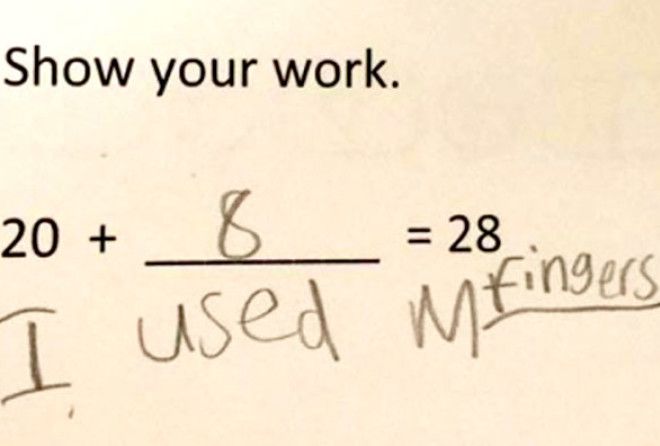 Show your work.
20 + 8 = 28
I used M fingers